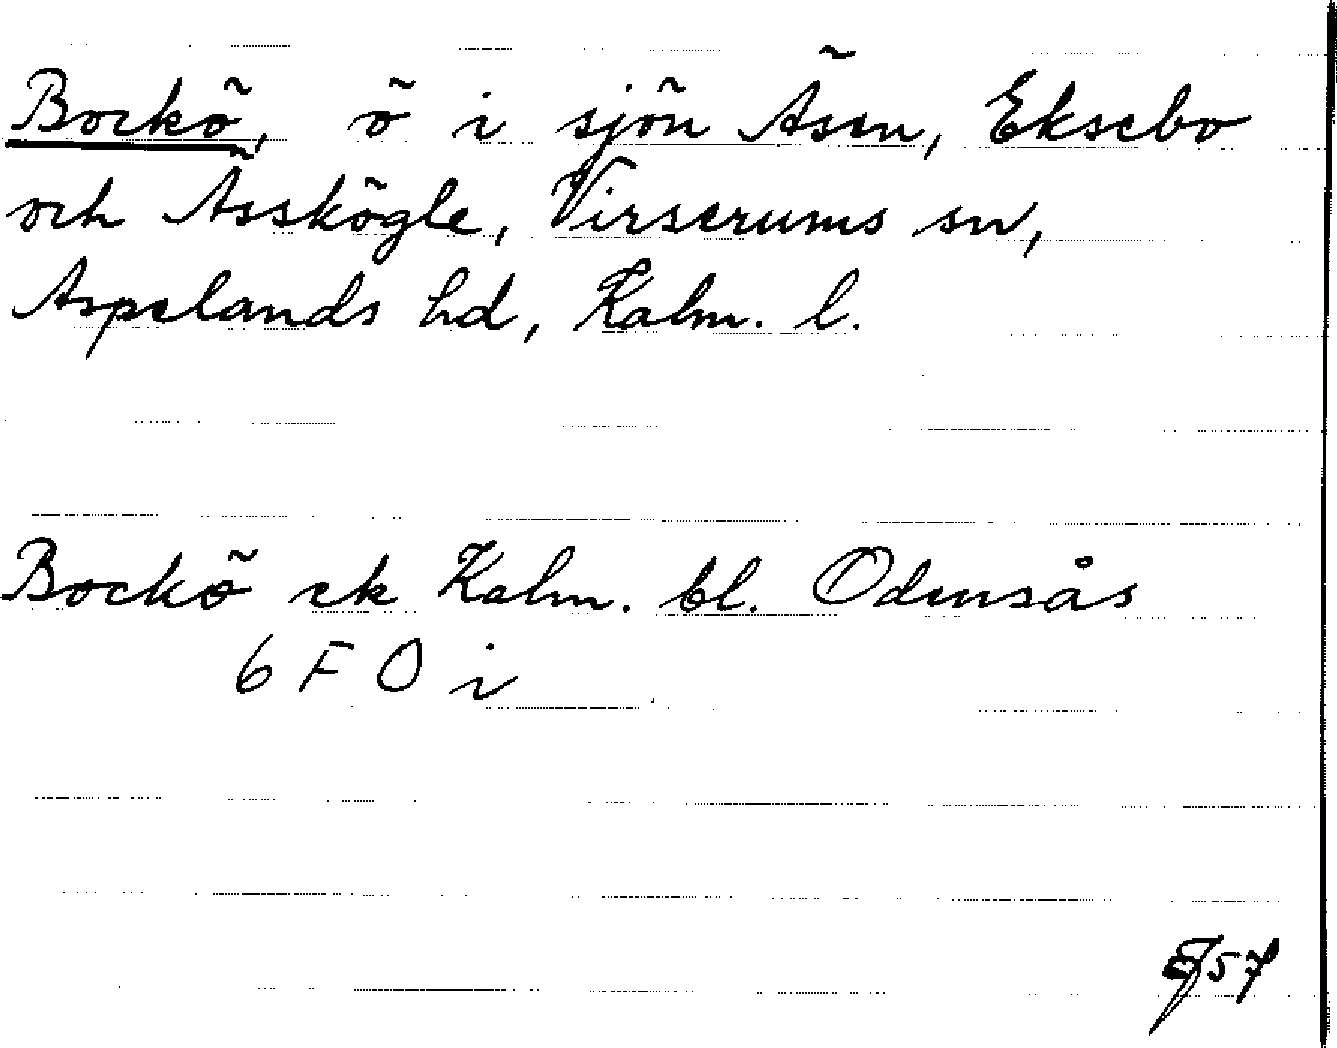 Bockö, ö i sjön Äsen, Eksebo
och Ässkögle, Virserums sn,
Aspelands hd, Kalm. l.
Bockö ek Kalm. bl. Odensås
6 F O i
57